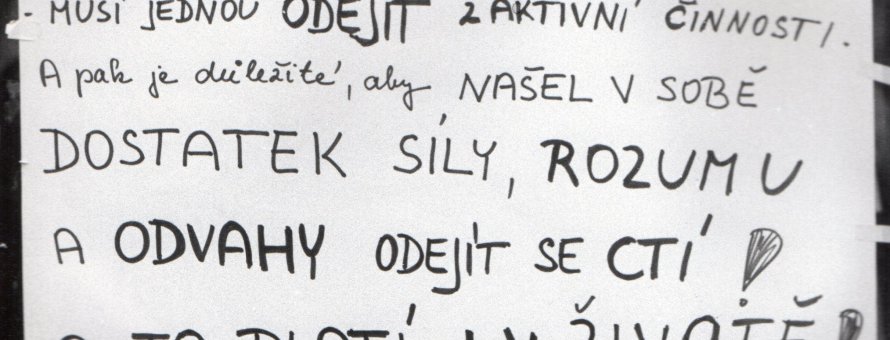 - MUSÍ JEDNOU ODEJÍT Z AKTIVNÍ ČINNOSTI.
A pak je důležité, aby NAŠEL V SOBĚ
DOSTATEK SÍLY, ROZUMU
A ODVAHY ODEJÍT SE CTÍ!
A TO PLATÍ I V ŽIVOTĚ!